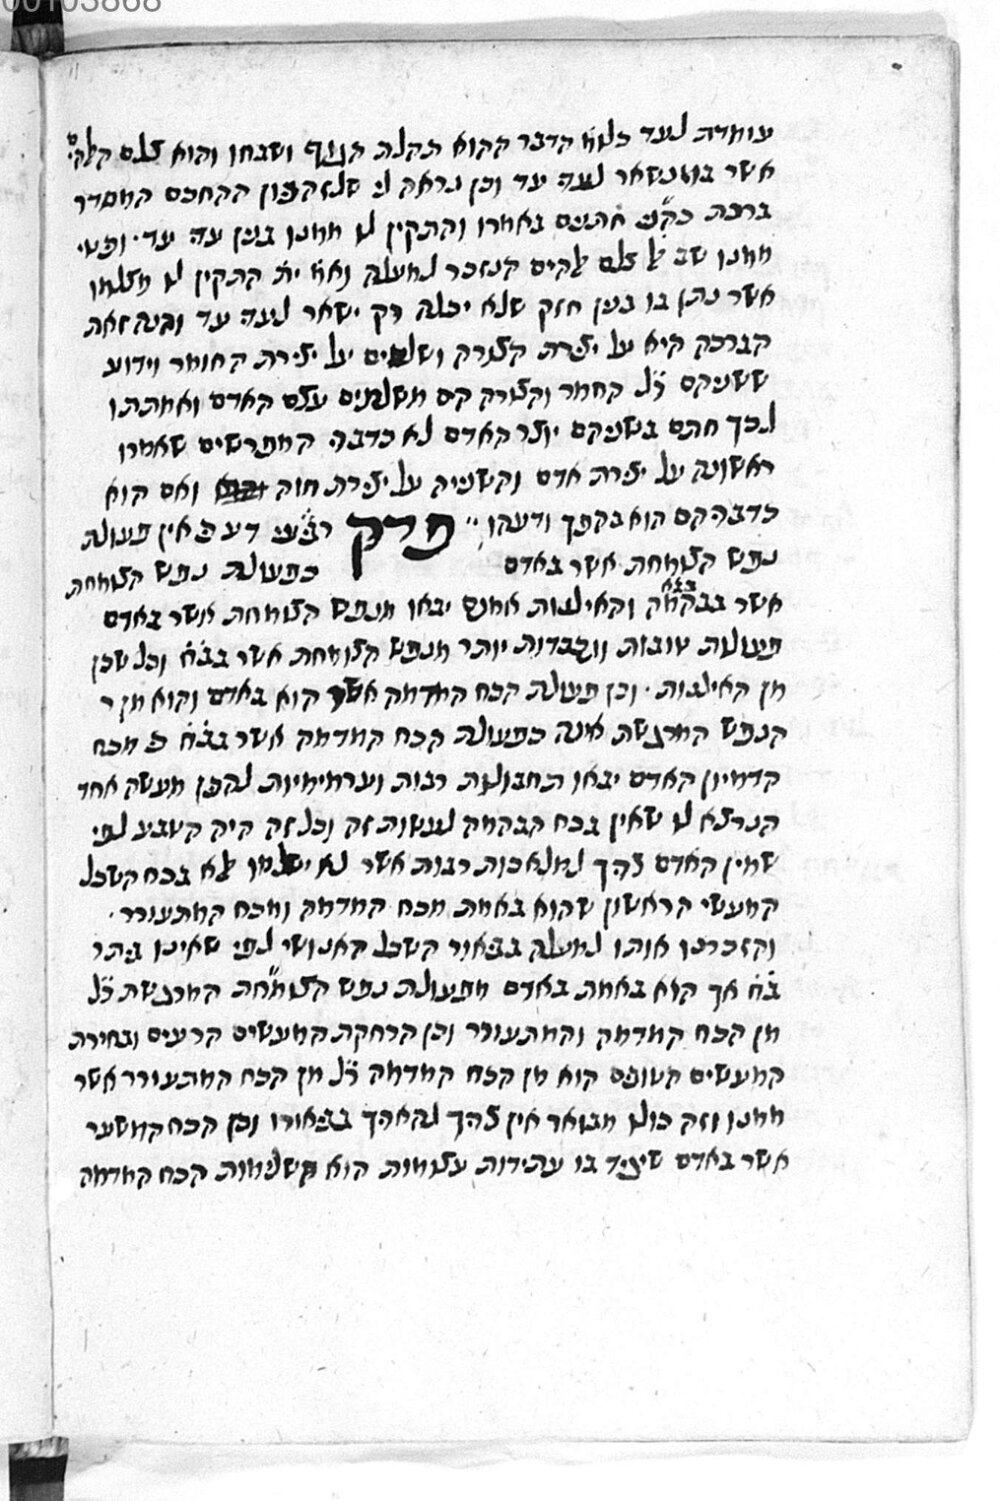 00103868
עומדת לעד כלומ' הדבר ההוא תהלת הגוף ושבחו והוא צלם הלהי'ם
אשר בו נשאר לעד עד וכן נראה לי שלזה כוון החכם המסדר
ברכת חתנים באמרו והתקין לו ממנו בנין עדי עד ופי'
ממנו שב אל צלם להים הנזכר למעלה ואמ' ית' התקין לו מצלמו
אשר נתן בו בנין חזק שלא יכלה רק ישאר לעדי עד והנה זאת
הברכה היא על יצירת הצורה ושלפנים על יצירת החומר וידוע
ששניהם ר"ל החמר והצורה הם משלימים עצם האדם ואמתתו
לכך חתם בשניהם יוצר האדם לא כדברי המפרשים שאמרו
ראשונה על יצירת אדם והשנייה על יצירת חוה ואם הוא
כדבריהם הוא בהפך ודעהו
פרק רביעי דע כי אין פעולת
נפש הצומחת אשר באדם כפעולת נפש הצומחת
אשר בבהמה והאילנות אמנם יבאו מנפש הצומחת אשר באדם
פעולות טובות ונכבדות יותר מנפש הצומחת אשר בב"ח וכל שכן
מן האילנות וכן פעולת הכח המדמה אשר הוא באדם והוא מן ר
הנפש המרגשת אינה כפעולת הכח המדמה אשר בב"ח כי מכח
הדמיון האדם יבאו תחבולות רבות וערמימיות להכין מעשה אחד
הנרצא לו שאין בכח הבהמה לעשות זה וכל זה היה הטבע לפי
שמין האדם צריך למלאכות רבות אשר לא ישלמו לא בכח השכל
המעשי הראשון שהוא באמת מכח המדמה ומכח המתעורר
והזכרנו אותו למעלה בבאור השכל האנושי לפי שאינו ביתר
ב"ח אך הוא באמת באדם מפעולת נפש הצומחת המרגשת ר"ל
מן הכח המדמה והמתעורר וכן הרחקת המעשים הרעים ובחירת
המעשים הטובים הוא מן הכח המדמה ר"ל מן הכח המתעורר אשר
ממנו וזה כולו מבואר אין צריך להאריך בבאורו וכן הכח המשער
אשר באדם שיגיד בו עתידות עצומות הוא משלימות הכח המדמה